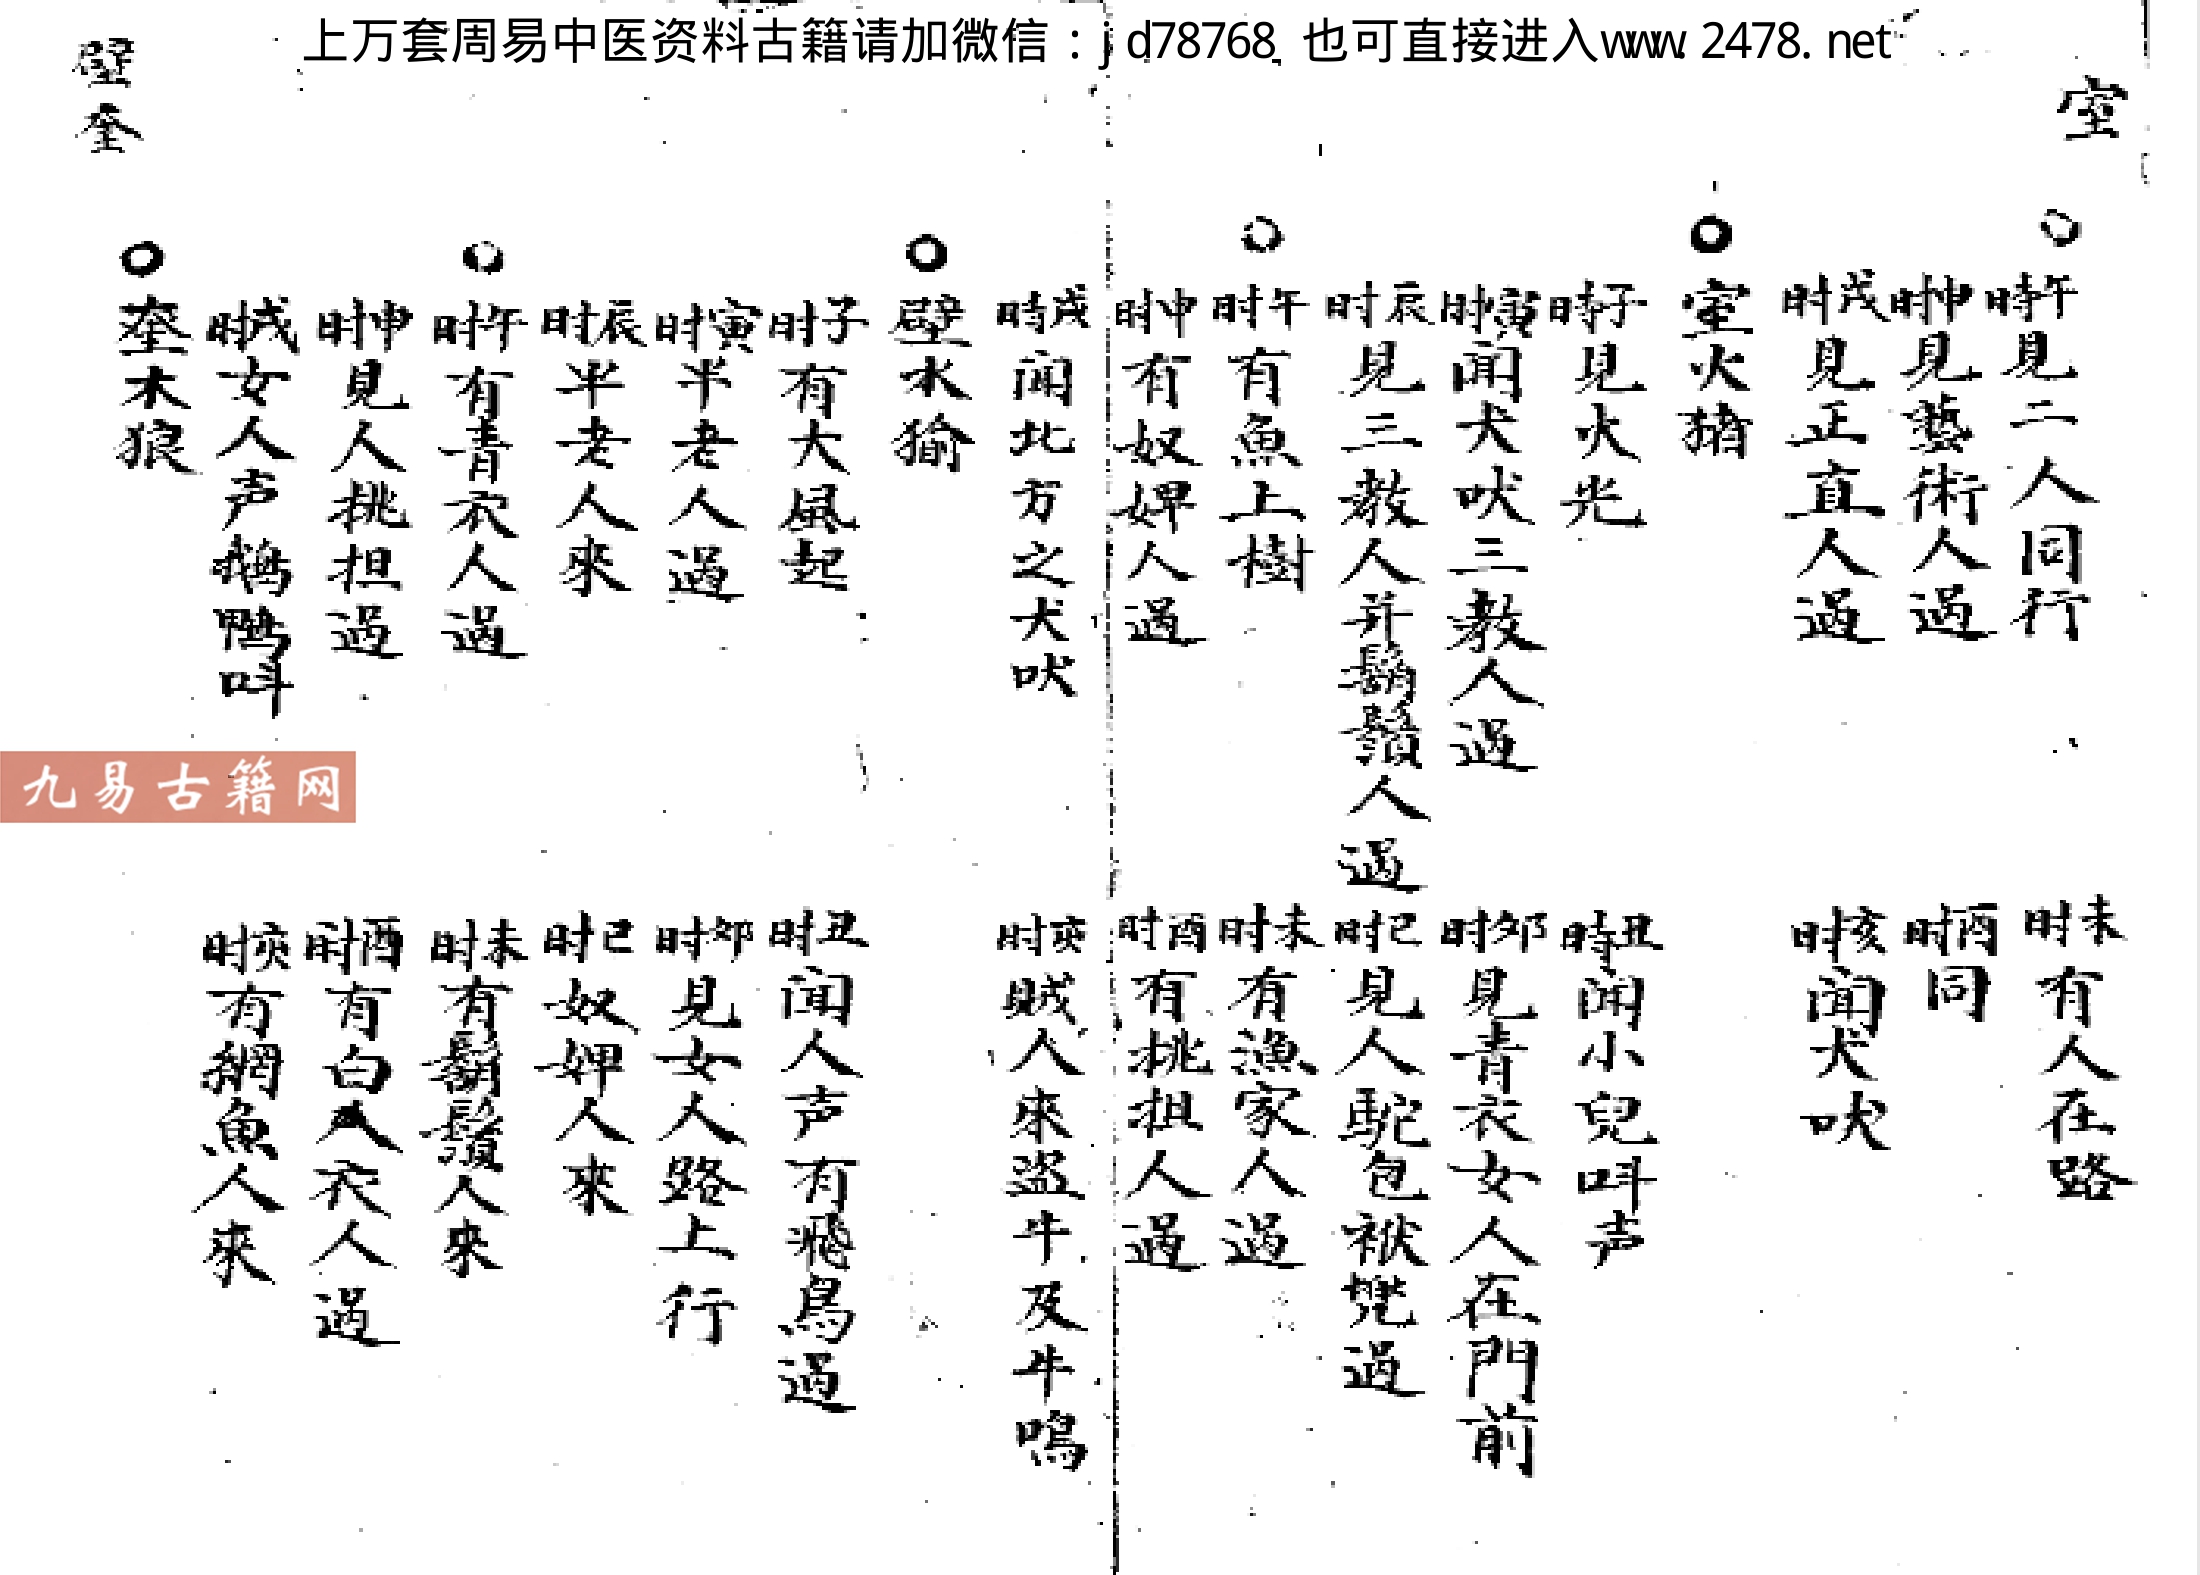 上万套周易中医资料古籍请加微信：jd78768 也可直接进入www.2478.net
室
午時見二人同行
未时有人在路
申时見藝術人過
酉时同
戌时見正直人過
亥时闻犬吠
室火猪
子時見火光
丑時闻小兒呌声
寅时闻犬吠三教人過
卯时見青衣女人在門前
辰时見三教人并鬍鬚人過
巳时見人駝包袱兠過
午时有魚上樹
未时有漁家人過
申时有奴婢人過
酉时有挑担人過
戌時闻北方之犬吠
亥时賊人來盗牛及牛鳴
壁水㺄
子时有大風起
丑时闻人声有飛鳥過
寅时半老人過
卯时見女人路上行
辰时半老人來
巳时奴婢人來
午时有青衣人過
未时有鬍鬚人來
申时見人挑担過
酉时有白衣人過
戌时女人声鵝鴨呌
亥时有網魚人來
奎木狼
壁奎
九易古籍网